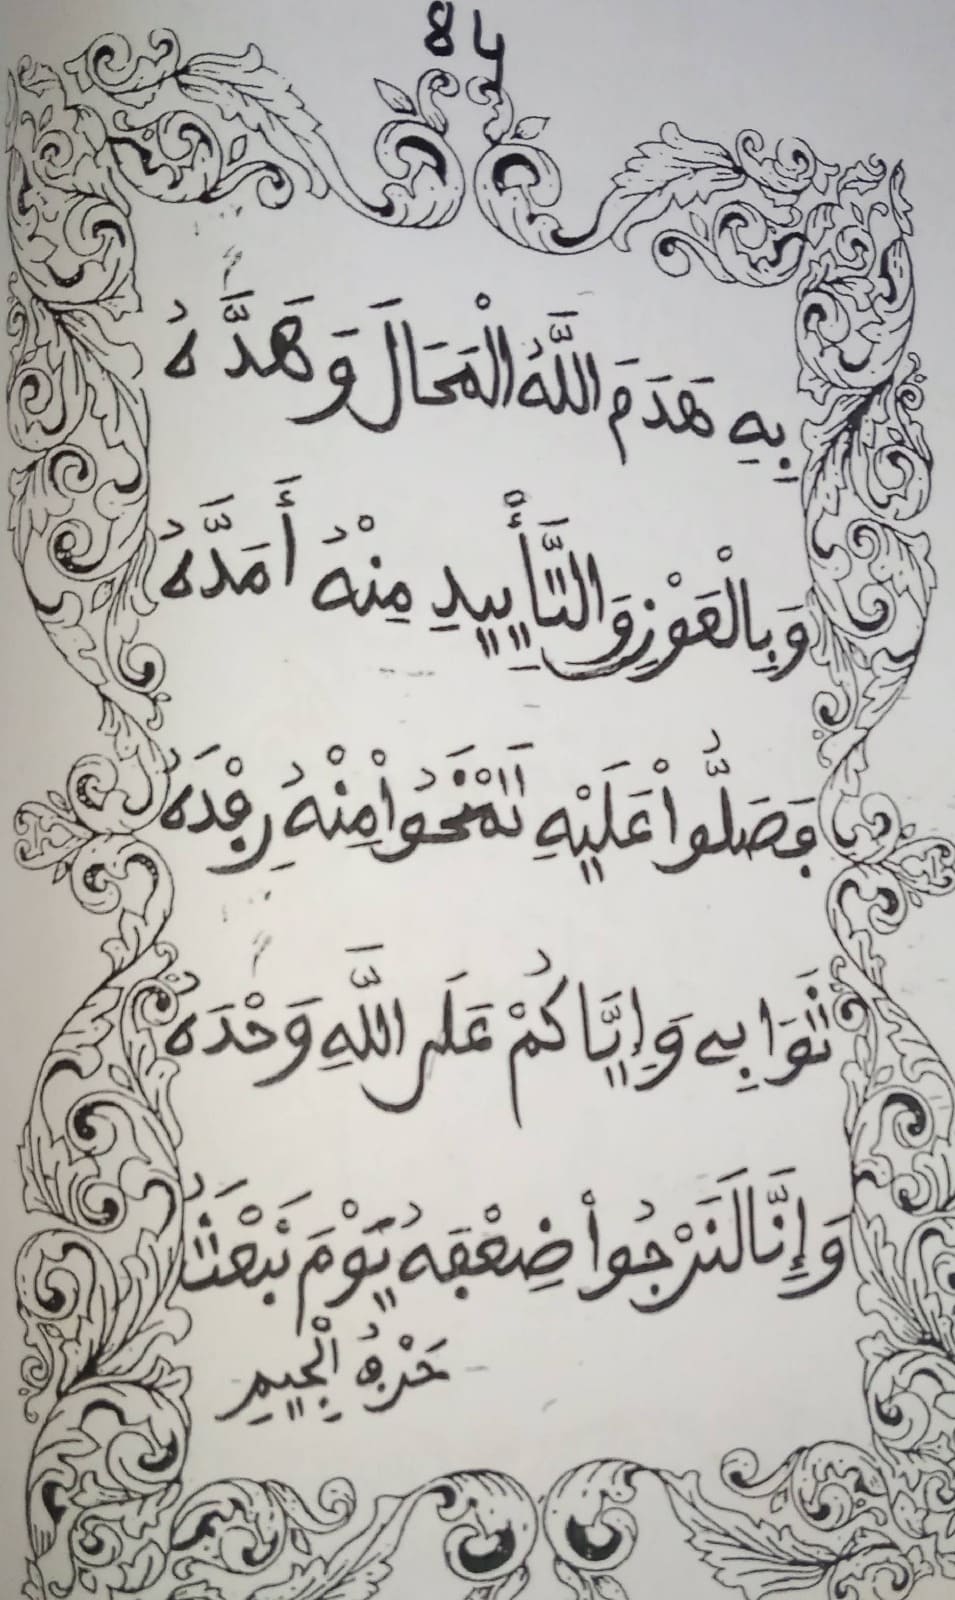 84
بِهِ هَدَمَ اللَّهُ الْمَحَالَ وَهَدَّهُ
وَبِالْفَوْزِ وَالتَّأْيِيدِ مِنْهُ أَمَدَّهُ
فَصَلُّواْ عَلَيْهِ تَمْنَحُواْ مِنْهُ رِفْدَهُ
ثَوَابِي وَإِيَّاكُمْ عَلَى اللَّهِ وَحْدَهُ
وَإِنَّا لَنَرْجُواْ ضِعْفَهُ يَوْمَ نَبْعَثُ
حَرْفُ الْجِيمِ